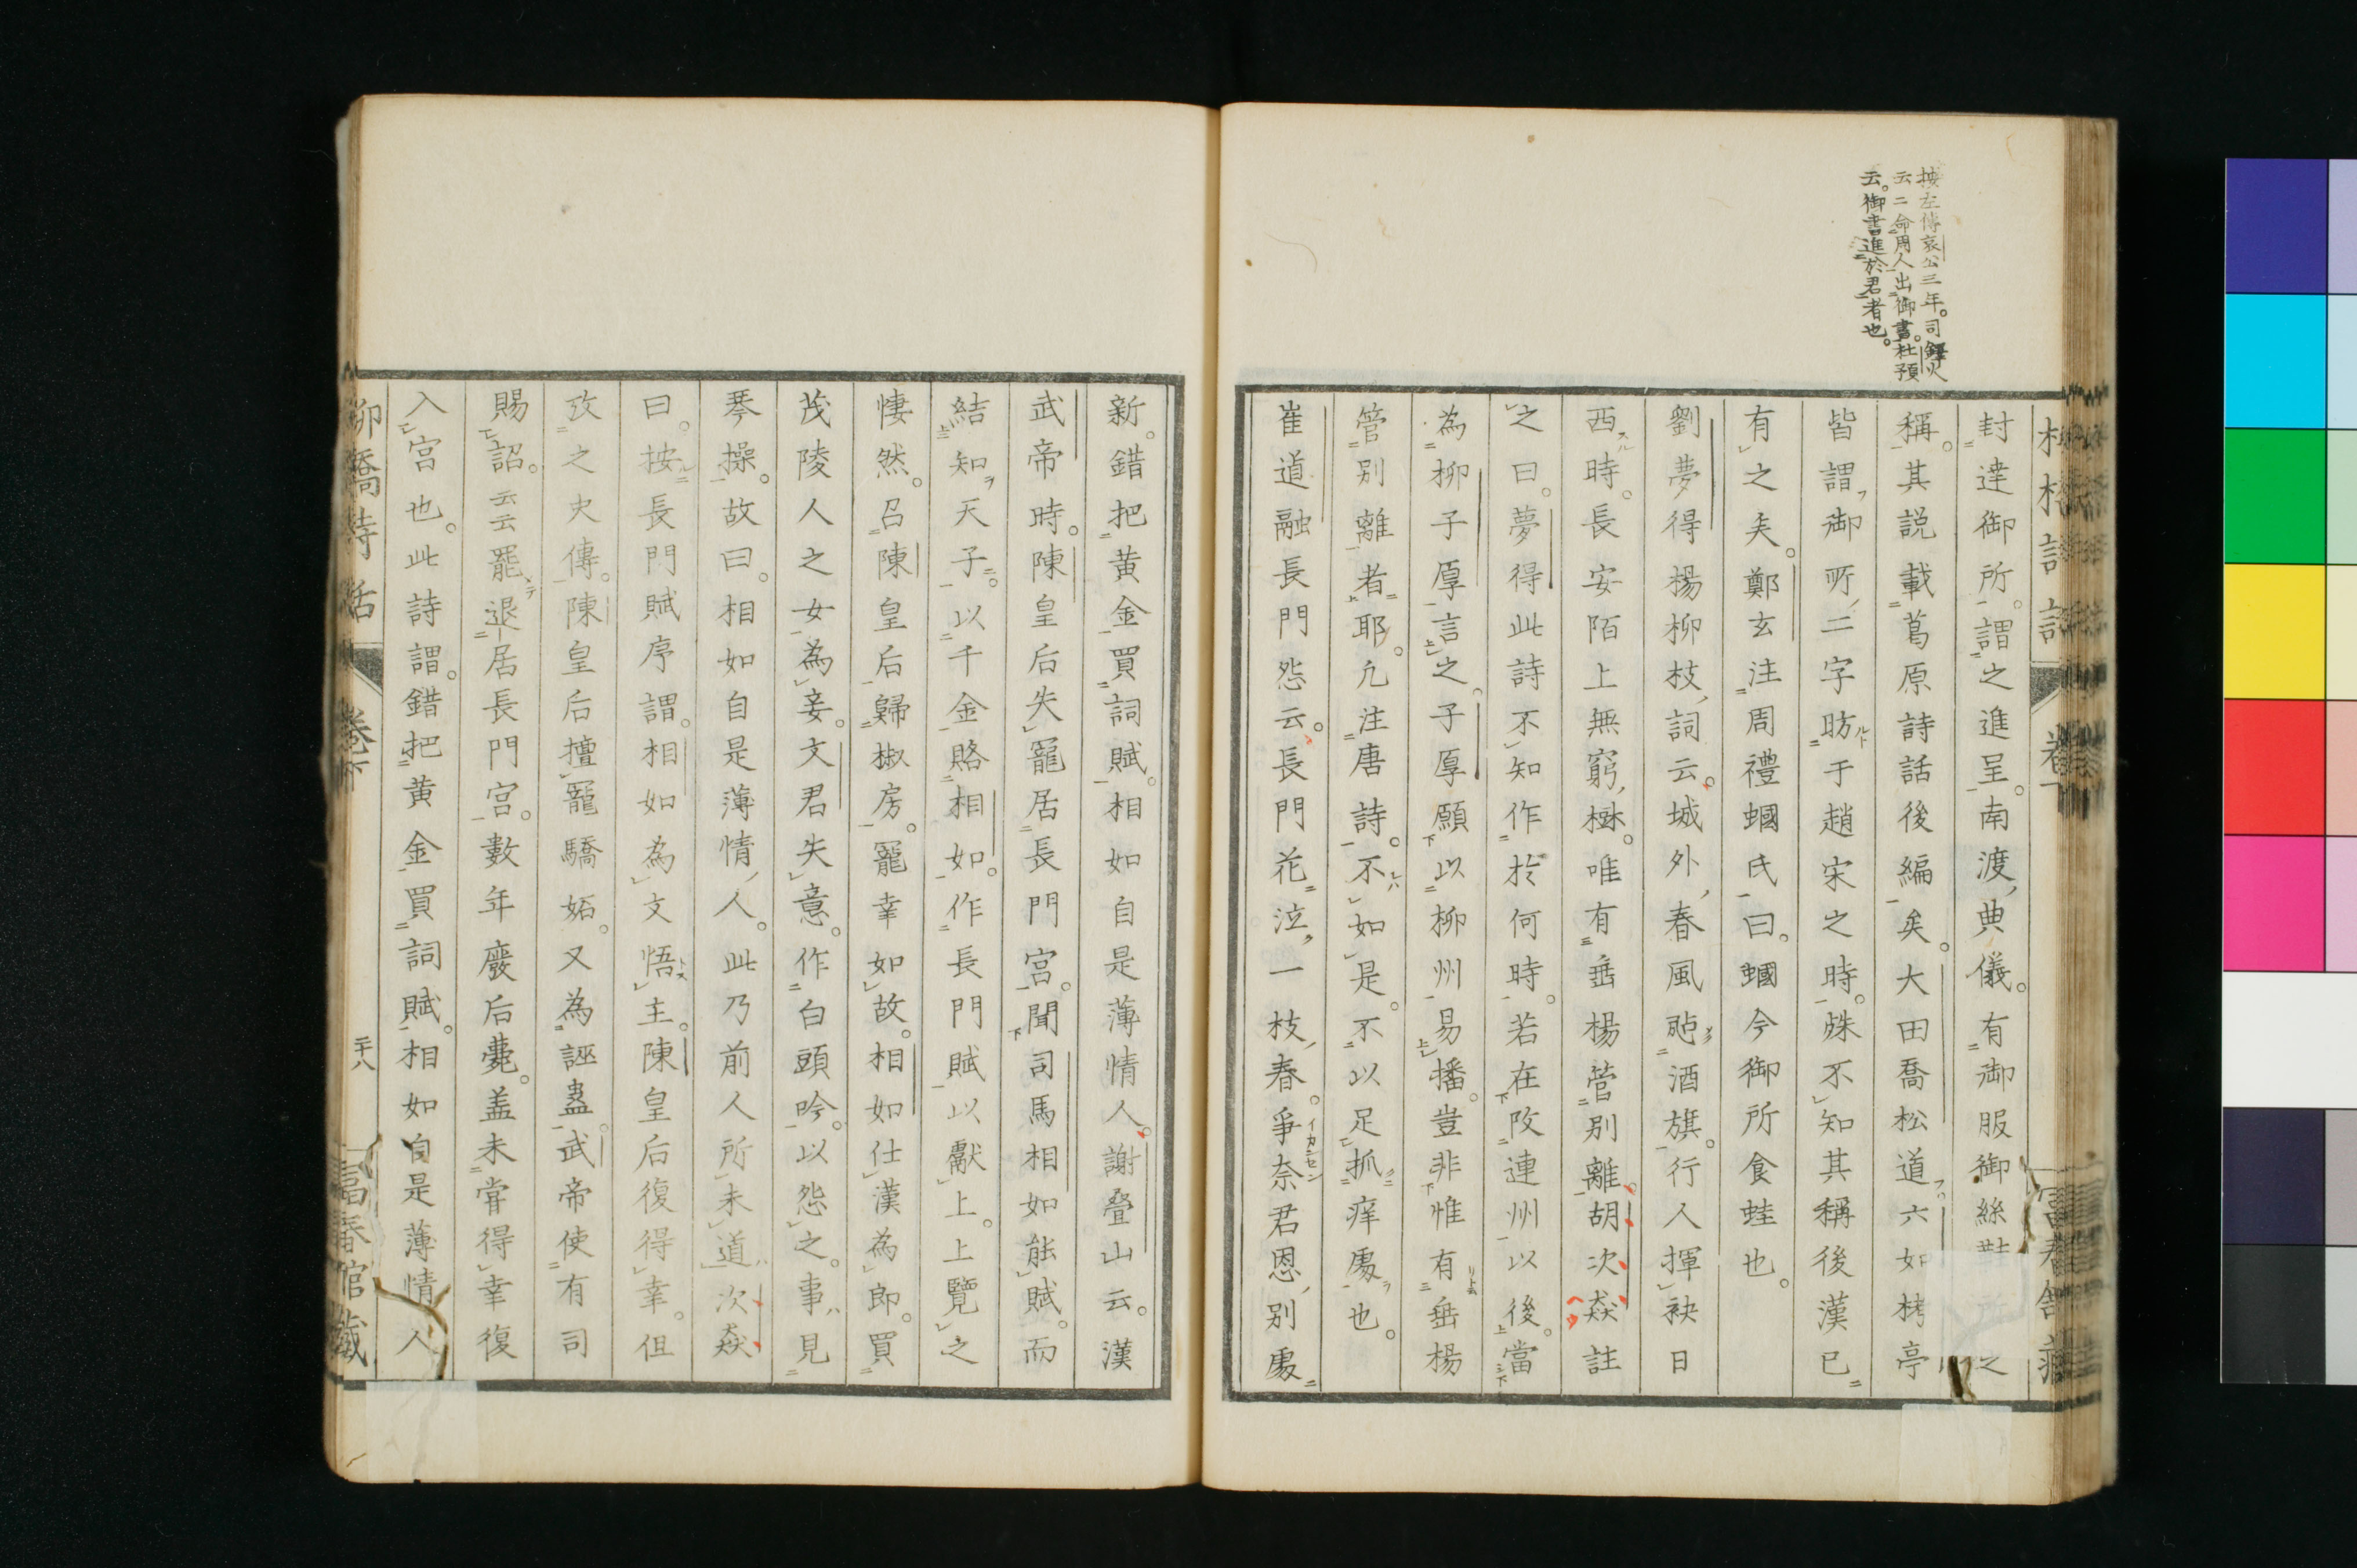 按左傳哀公三年。司鐸火
云二命周人出御書。杜預
云。御書進於君者也。
封達御所。謂之進呈。南渡典儀。有御服御絲鞋所之
稱。其説載葛原詩話後編矣。大田喬松道。六如栲亭
皆謂御所二字昉于趙宋之時。殊不知其稱後漢已
有之矣。鄭玄注周禮蟈氏曰。蟈今御所食蛙也。
劉夢得楊柳枝詞云。城外春風颭酒旗。行人揮袂日
西時。長安陌上無窮樹。唯有垂楊管別離。胡次焱註
之曰。夢得此詩不知作於何時。若在改連州以後。當
為柳子厚言之。子厚願以柳州易播。豈非惟有垂楊
管別離者耶。凡注唐詩。不如是。不以足抓痒處也。
崔道融長門怨云。長門花泣一枝春。爭奈君恩別處
新。錯把黄金買詞賦。相如自是薄情人。謝疊山云。漢
武帝時。陳皇后失寵居長門宮。聞司馬相如能賦。而
結知天子。以千金賂相如。作長門賦以獻上。上覽之
悽然。召陳皇后歸椒房。寵幸如故。相如仕漢為郎。買
茂陵人之女為妾。文君失意。作白頭吟。以怨之。事見
琴操。故曰。相如自是薄情人。此乃前人所未道次焱
曰。按長門賦序謂。相如為文悟主。陳皇后復得幸。但
攷之史傳。陳皇后擅寵驕妬。又為誣蠱。武帝使有司
賜詔。云云罷退居長門宮。數年廢后薨。盖未甞得幸復
入宮也。此詩謂。錯把黄金買詞賦。相如自是薄情人
柳橋詩話
卷下
二十八